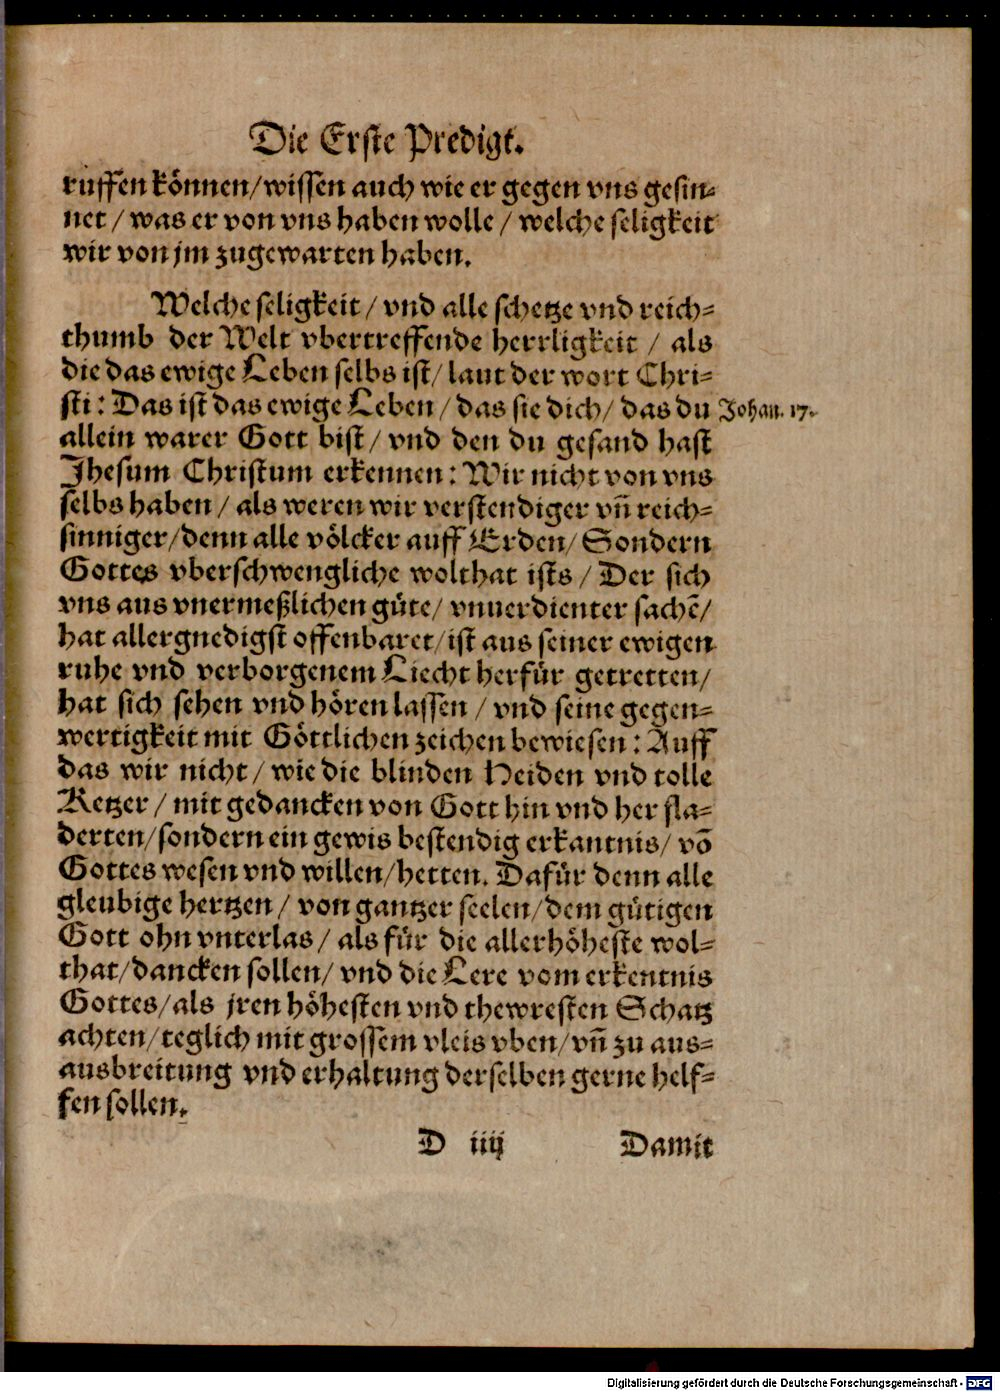 Die Erste Predigt.
ruffen können/wissen auch wie er gegen vns gesin-
net / was er von vns haben wolle / welche seligkeit
wir von jm zugewarten haben.
Welche seligkeit / vnd alle schetze vnd reich-
thumb der Welt vbertreffende herrligkeit / als
die das ewige Leben selbs ist/ laut der wort Chri-
sti: Das ist das ewige Leben / das sie dich/ das du Johan. 17.
allein warer Gott bist/ vnd den du gesand hast
Jhesum Christum erkennen: Wir nicht von vns
selbs haben / als weren wir verstendiger vn̄ reich-
sinniger/denn alle völcker auff Erden/ Sondern
Gottes vberschwengliche wolthat ists / Der sich
vns aus vnermeßlichen güte/ vnuerdienter sachē/
hat allergnedigst offenbaret/ist aus seiner ewigen
ruhe vnd verborgenem Liecht herfür getretten/
hat sich sehen vnd hören lassen / vnd seine gegen-
wertigkeit mit Göttlichen zeichen bewiesen: Auff
das wir nicht / wie die blinden Heiden vnd tolle
Ketzer / mit gedancken von Gott hin vnd her fla-
derten/sondern ein gewis bestendig erkantnis/ vō
Gottes wesen vnd willen/hetten. Dafür denn alle
gleubige hertzen / von gantzer seelen/dem gütigen
Gott ohn vnterlas / als für die allerhöheste wol-
that/dancken sollen/ vnd die Lere vom erkentnis
Gottes/als jren höhesten vnd thewresten Schatz
achten/teglich mit grossem vleis vben/vn̄ zu aus-
ausbreitung vnd erhaltung derselben gerne helf-
fen sollen.
D iiij Damit
Digitalisierung gefördert durch die Deutsche Forschungsgemeinschaft - DFG